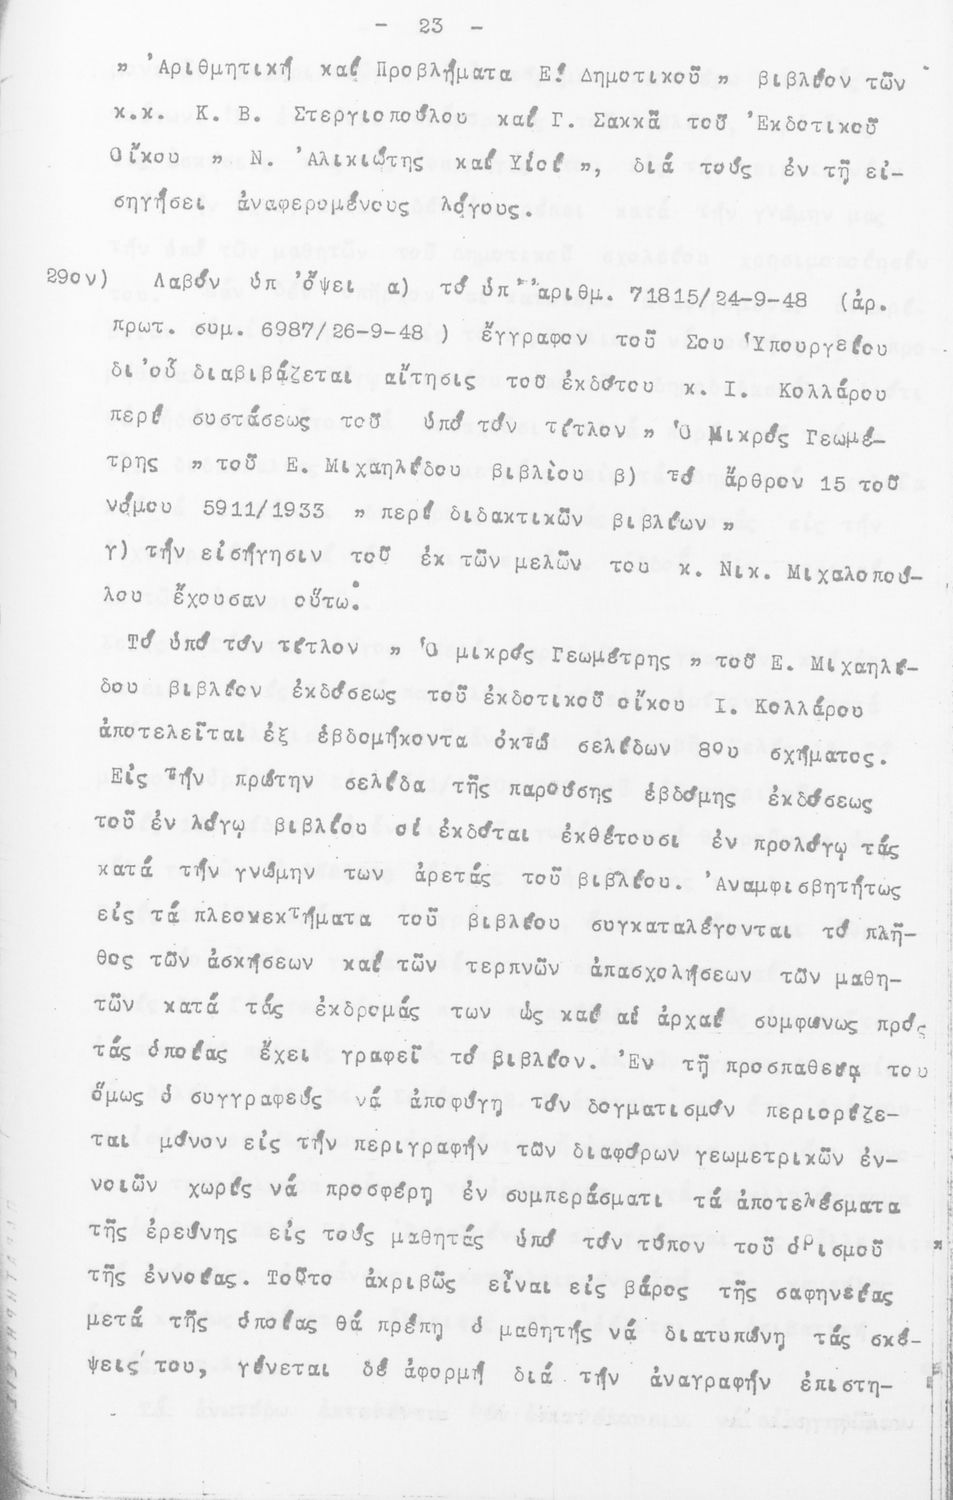 - 23 -
„ Ἀριθμητική καί Προβλήματα Ε! Δημοτικοῦ „ βιβλίον τῶν
κ.κ. Κ. Β. Στεργιοπούλου καί Γ. Σακκᾶ τοῦ Ἐκδοτικοῦ
Οἴκου „ Ν. Ἀλικιώτης καί Υἱοί „, διά τούς ἐν τῇ εἰ-
σηγήσει ἀναφερομένους λόγους.
29ον) Λαβόν ὑπ ὄψει α) τό ὑπ ἀριθμ. 71815/24-9-48 (ἀρ.
πρωτ. συμ. 6987/26-9-48 ) ἔγγραφον τοῦ Σου Ὑπουργείου
δι οὗ διαβιβάζεται αἴτησις τοῦ ἐκδότου κ. Ι. Κολλάρου
περί συστάσεως τοῦ ὑπό τόν τίτλον „ Ὁ Μικρός Γεωμέ-
τρης „ τοῦ Ε. Μιχαηλίδου βιβλὶου β) τό ἄρθρον 15 τοῦ
νόμου 5911/1933 „ περί διδακτικῶν βιβλίων „
γ) τήν εἰσήγησιν τοῦ ἐκ τῶν μελῶν του κ. Νικ. Μιχαλοπού-
λου ἔχουσαν οὕτω:
Τό ὑπό τόν τίτλον „ Ὁ μικρός Γεωμέτρης „ τοῦ Ε. Μιχαηλί-
δου βιβλίον ἐκδόσεως τοῦ ἐκδοτικοῦ οἴκου Ι. Κολλάρου
ἀποτελεῖται ἐξ ἑβδομήκοντα ὀκτώ σελίδων 8ου σχήματος.
Εἰς τήν πρώτην σελίδα τῆς παρούσης ἑβδόμης ἐκδόσεως
τοῦ ἐν λόγῳ βιβλίου οἱ ἐκδόται ἐκθέτουσι ἐν προλόγῳ τάς
κατά τήν γνώμην των ἀρετάς τοῦ βιβλίου. Ἀναμφισβητήτως
εἰς τά πλεονεκτήματα τοῦ βιβλίου συγκαταλέγονται τό πλῆ-
θος τῶν ἀσκήσεων καί τῶν τερπνῶν ἀπασχολήσεων τῶν μαθη-
τῶν κατά τάς ἐκδρομάς των ὡς καί αἱ ἀρχαί συμφωνως πρός
τάς ὁποίας ἔχει γραφεῖ τό βιβλίον. Ἐν τῇ προσπαθείᾳ του
ὅμως ὁ συγγραφεύς νά ἀποφύγη τόν δογματισμόν περιορίζε-
ται μόνον εἰς τήν περιγραφήν τῶν διαφόρων γεωμετρικῶν ἐν-
νοιῶν χωρίς νά προσφέρη ἐν συμπεράσματι τά ἀποτελέσματα
τῆς ἐρεύνης εἰς τούς μαθητάς ὑπό τόν τύπον τοῦ ὁρισμοῦ
τῆς ἐννοίας. Τοῦτο ἀκριβῶς εἶναι εἰς βάρος τῆς σαφηνείας
μετά τῆς ὁποίας θά πρέπη ὁ μαθητής νά διατυπώνη τάς σκέ-
ψεις του, γίνεται δέ ἀφορμή διά τήν ἀναγραφήν ἐπιστη-